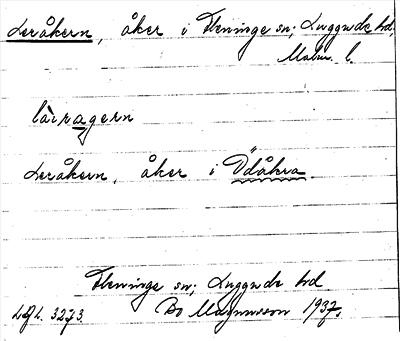 Leråkern, åker i Fleninge sn; Luggude hd,
Malm. l.
làiragern
Leråkern, åker i Ödåkra.
Fleninge sn; Luggude hd
Bo Magnusson 1937.
3273.